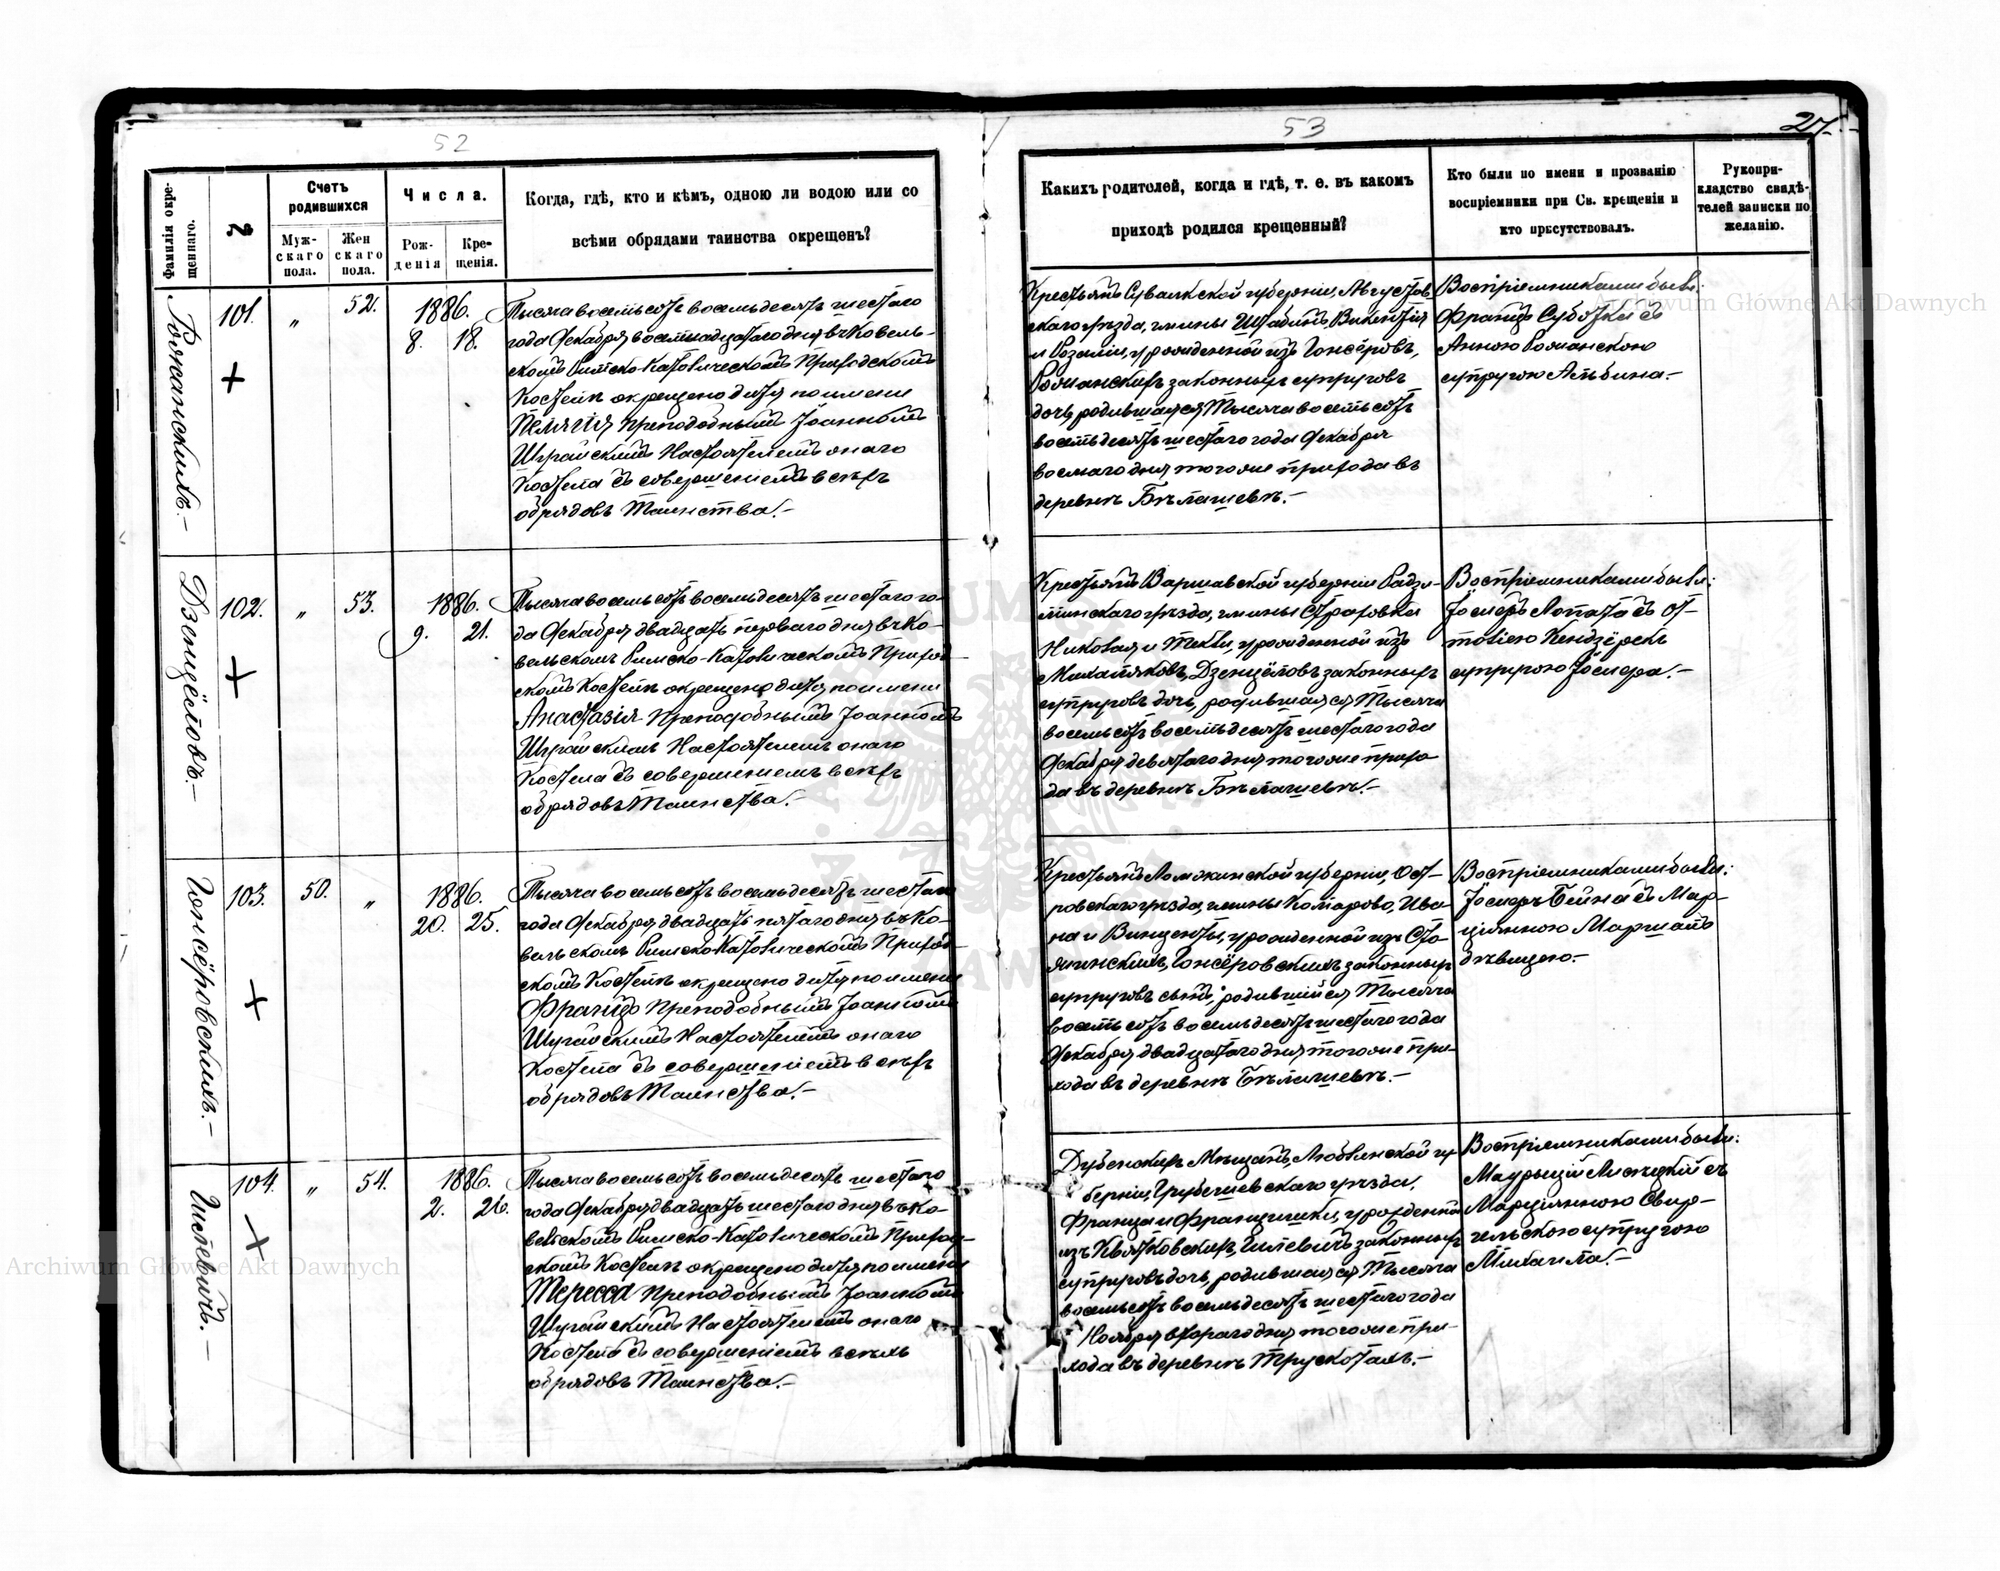 52
Фамилія окрещеннаго.
№
Счетъ родившихся
Мужскаго пола.
Женскаго пола.
Числа.
Рожденія
Крещенія.
Когда, гдѣ, кто и кѣмъ, одною ли водою или со
всѣми обрядами таинства окрещенъ?
Романскихъ.-
101.
"
52.
1886.
8. 18.
Тысяча восемьсотъ восемьдесятъ шестаго
года Декабря восемнадцатаго дня въ Ковель-
скомъ Римско-Католическомъ Приходскомъ
Костелѣ окрещено дитя по имени
Пелягія Преподобнымъ Іоанномъ
Настоятелемъ онаго
Костела съ совершеніемъ всѣхъ
обрядовъ Таинства.-
102.
"
53.
1886.
9. 21.
Тысяча восемьсотъ восемьдесятъ шестаго го-
да Декабря двадцать перваго дня въ Ко-
вельскомъ Римско-Католическомъ Приход-
скомъ Костелѣ окрещено дитя по имени
Анастазія Преподобнымъ Іоанномъ
Настоятелемъ онаго
Костела съ совершеніемъ всѣхъ
обрядовъ Таинства.-
Гонсёровскихъ.-
103.
50.
"
1886.
20. 25.
Тысяча восемьсотъ восемьдесятъ шестаго
года Декабря двадцать пятаго дня въ Ко-
вельскомъ Римско-Католическомъ Приход-
скомъ Костелѣ окрещено дитя по имени
Францъ Преподобнымъ Іоанномъ
Настоятелемъ онаго
Костела съ совершеніемъ всѣхъ
обрядовъ Таинства.-
Гилевичъ.-
104.
"
54.
1886.
2. 26.
Тысяча восемьсотъ восемьдесятъ шестаго
года Декабря двадцать шестаго дня въ Ко-
вельскомъ Римско-Католическомъ Приход-
скомъ Костелѣ окрещено дитя по имени
Тересса Преподобнымъ Іоанномъ
Настоятелемъ онаго
Костела съ совершеніемъ всѣхъ
обрядовъ Таинства.-
53
27.
Какихъ родителей, когда и гдѣ, т. е. въ какомъ
приходѣ родился крещенный?
Кто были по имени и прозванію
воспріемники при Св. крещеніи и
кто присутствовалъ.
Рукопри-
кладство свидѣ-
телей записки по
желанію.
Крестьянъ Сувалкской губерніи, Августов-
скаго уѣзда, гмины Штабинъ Викентія
и Розаліи, урожденной изъ Гонсёровъ,
Романскихъ законныхъ супруговъ
дочь, родившаяся Тысяча восемьсотъ
восемьдесятъ шестаго года Декабря
восьмаго дня того же прихода въ
деревнѣ Бѣлашевѣ.-
Воспріемниками были:
Францъ Суботка съ
Анною Романскою
супругою Альбина.-
Крестьянъ Варшавской губерніи Радзи-
минскаго уѣзда, гмины Страховка
Николая и Теклі, урожденной изъ
законныхъ
супруговъ дочь, родившаяся Тысяча
восемьсотъ восемьдесятъ шестаго года
Декабря девятаго дня того же прихо-
да въ деревнѣ Бѣлашевѣ.-
Воспріемниками были:
Іосифъ Лопата съ
супругою Іосифа.-
Крестьянъ Ломжинской губерніи, Ост-
ровскаго уѣзда, гмины Комарово, Ива-
на и Винценты, урожденной изъ Сто-
Гонсёровскихъ законныхъ
супруговъ сынъ, родившійся Тысяча
восемьсотъ восемьдесятъ шестаго года
Декабря двадцатаго дня того же при-
хода въ деревнѣ Бѣлашевѣ.-
Воспріемниками были:
Іосифъ Бейна съ Мар-
ціянною
дѣвицею.-
Дубенскихъ Мѣщанъ, Люблинской гу-
берніи, Грубешевскаго уѣзда,
Франца и Францишки, урожденной
изъ Квятковскихъ Гилевичъ законныхъ
супруговъ дочь, родившаяся Тысяча
восемьсотъ восемьдесятъ шестаго года
Ноября втораго дня того же при-
хода въ деревнѣ Трускотахъ.-
Воспріемниками были:
Маурыцій Лисецкій съ
Марціянною Свир-
чельскою супругою
Михаила.-
Archiwum Główne Akt Dawnych
Archiwum Główne Akt Dawnych